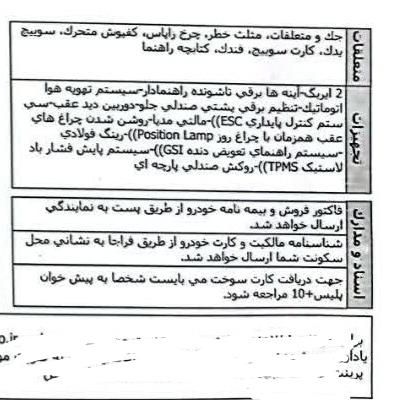 متعلقات
جك و متعلقات، مثلث خطر، چرخ زاپاس، كفپوش متحرك، سوييچ
يدك، كارت سوييچ، فندك، كتابچه راهنما
تجهیزات
2 ايربگ-آينه ها برقي تاشونده راهنمادار-سيستم تهويه هوا
اتوماتيك-تنظيم برقي پشتي صندلي جلو-دوربين ديد عقب-سي
ستم كنترل پايداري ESC))-مالتي مديا-روشن شدن چراغ هاي
عقب همزمان با چراغ روز Position Lamp))-رينگ فولادي
-سيستم راهنماي تعويض دنده GSI))-سيستم پايش فشار باد
لاستيك TPMS))-روكش صندلي پارچه اي
اسناد و مدارك
فاكتور فروش و بيمه نامه خودرو از طريق پست به نمايندگي
ارسال خواهد شد.
شناسنامه مالكيت و كارت خودرو از طريق فراجا به نشاني محل
سكونت شما ارسال خواهد شد.
جهت دريافت كارت سوخت مي بايست شخصا به پيش خوان
پليس+10 مراجعه شود.